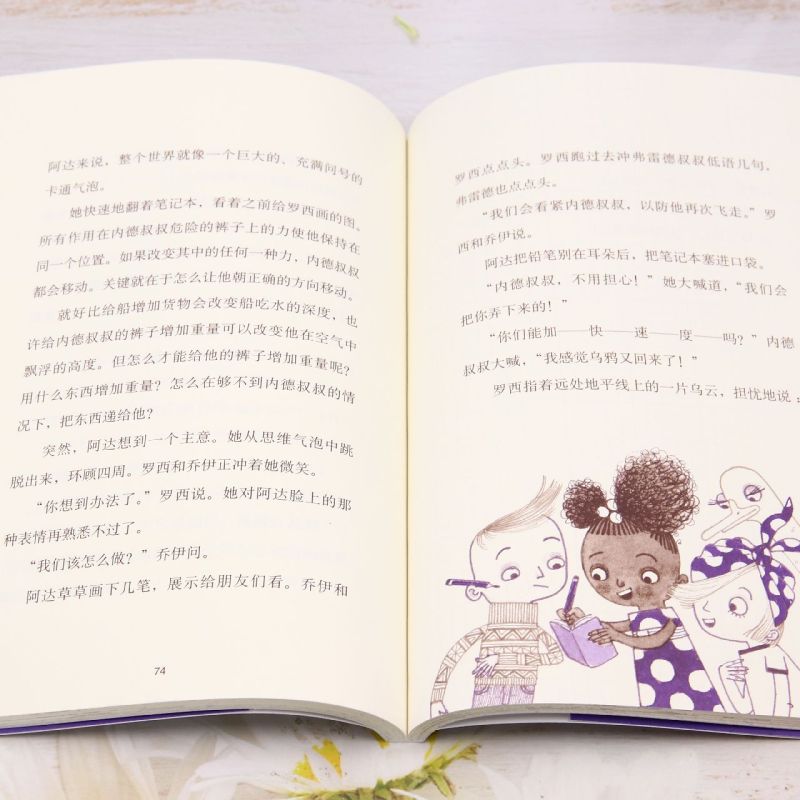 阿达来说，整个世界就像一个巨大的、充满问号的
卡通气泡。
她快速地翻着笔记本，看着之前给罗西画的图。
所有作用在内德叔叔危险的裤子上的力使他保持在
同一个位置。如果改变其中的任何一种力，内德叔叔
都会移动。关键就在于怎么让他朝正确的方向移动。
就好比给船增加货物会改变船吃水的深度，也
许给内德叔叔的裤子增加重量可以改变他在空气中
飘浮的高度。但怎么才能给他的裤子增加重量呢？
用什么东西增加重量？怎么在够不到内德叔叔的情
况下，把东西递给他？
突然，阿达想到一个主意。她从思维气泡中跳
脱出来，环顾四周。罗西和乔伊正冲着她微笑。
“你想到办法了。”罗西说。她对阿达脸上的那
种表情再熟悉不过了。
“我们该怎么做？”乔伊问。
阿达草草画下几笔，展示给朋友们看。乔伊和
74
罗西点点头。罗西跑过去冲弗雷德叔叔低语几句，
弗雷德也点点头。
“我们会看紧内德叔叔，以防他再次飞走。”罗
西和乔伊说。
阿达把铅笔别在耳朵后，把笔记本塞进口袋。
“内德叔叔，不用担心！”她大喊道，“我们会
把你弄下来的！”
“你们能加——快——速——度——吗？”内德
叔叔大喊，“我感觉乌鸦又回来了！”
罗西指着远处地平线上的一片乌云，担忧地说：